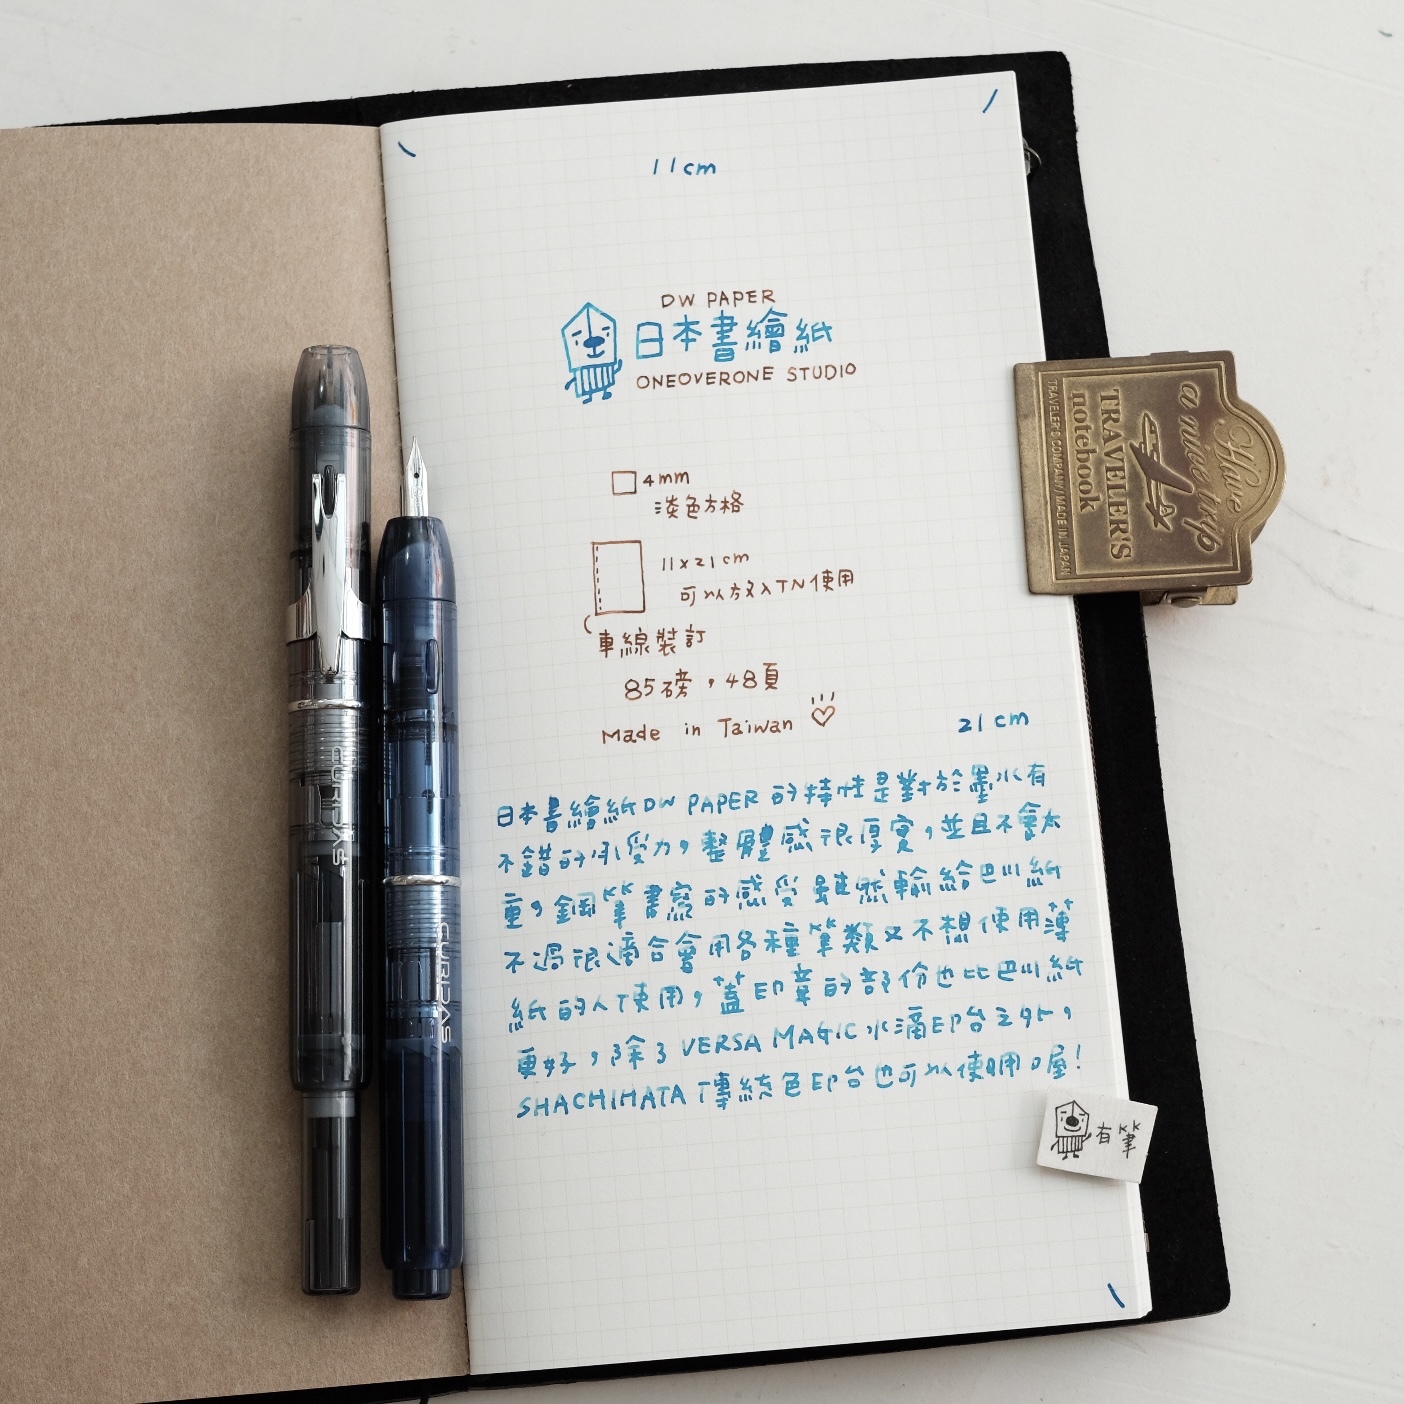 11cm
DW PAPER
日本書繪紙
ONEOVERONE STUDIO
4mm
淡色方格
11x21cm
可以放入TN使用
車線裝訂
85磅，48頁
Made in Taiwan
21cm
日本書繪紙DW PAPER的特性是對於墨水有
不錯的承受力，整體感很厚實，並且不會太
重，鋼筆書寫的感受雖然輸給巴川紙
不過很適合會用各種筆類又不想使用薄
紙的人使用，蓋印章的部份也比巴川紙
更好，除了VERSA MAGIC水滴印台之外，
SHACHIHATA傳統色印台也可以使用喔！
有筆
Have
a nice trip
TRAVELER'S
notebook
TRAVELER'S COMPANY MADE IN JAPAN
CURIDAS
CURIDAS